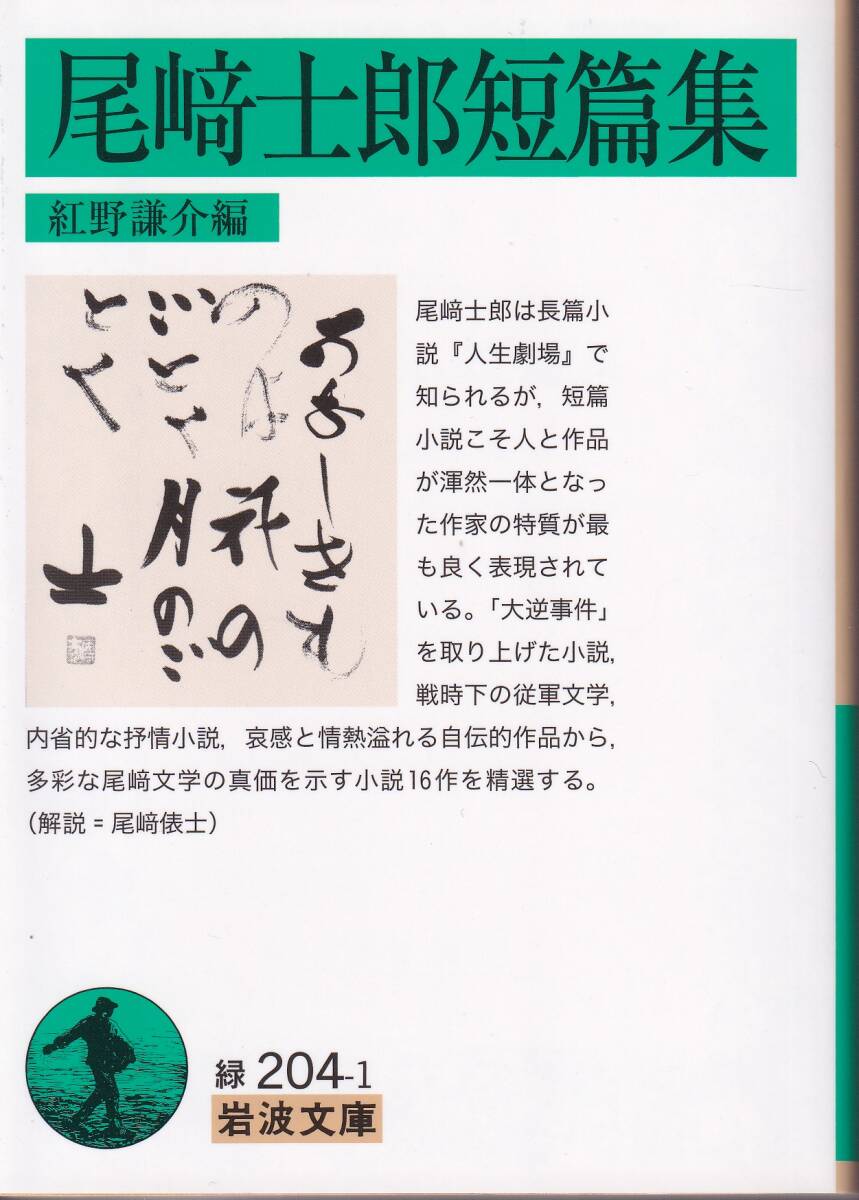 尾﨑士郎短篇集
紅野謙介編
のは花の
ごとく月のご
とく
士
尾﨑士郎は長篇小
説『人生劇場』で
知られるが，短篇
小説こそ人と作品
が渾然一体となっ
た作家の特質が最
も良く表現されて
いる。「大逆事件」
を取り上げた小説，
戦時下の従軍文学，
内省的な抒情小説，哀感と情熱溢れる自伝的作品から，
多彩な尾﨑文学の真価を示す小説16作を精選する。
（解説＝尾﨑俵士）
緑 204-1
岩波文庫